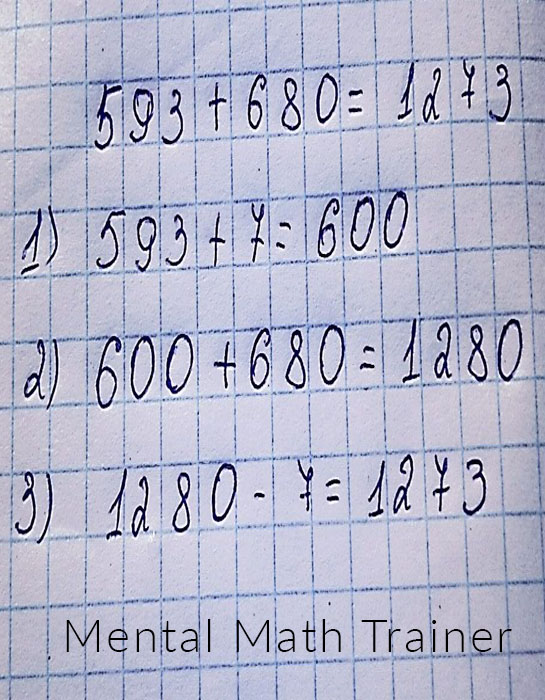 593 + 680 = 1273
1) 593 + 7 = 600
2) 600 + 680 = 1280
3) 1280 - 7 = 1273
Mental Math Trainer